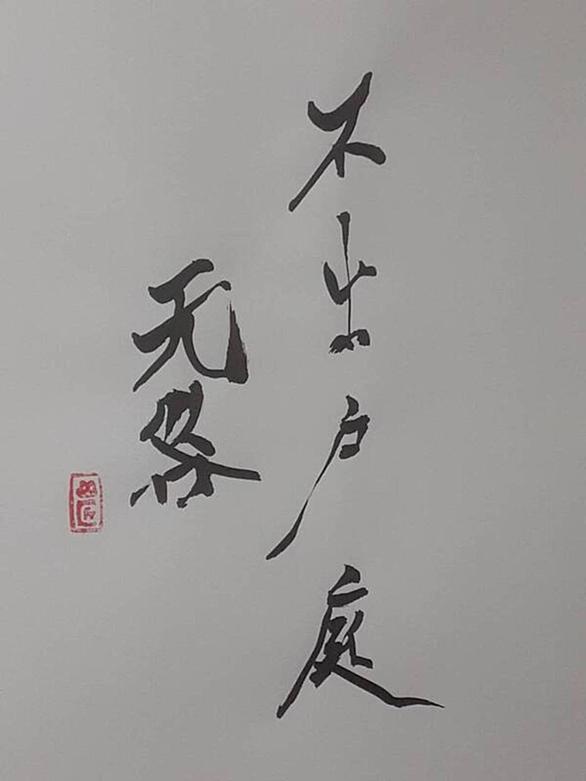 不出户庭
无咎